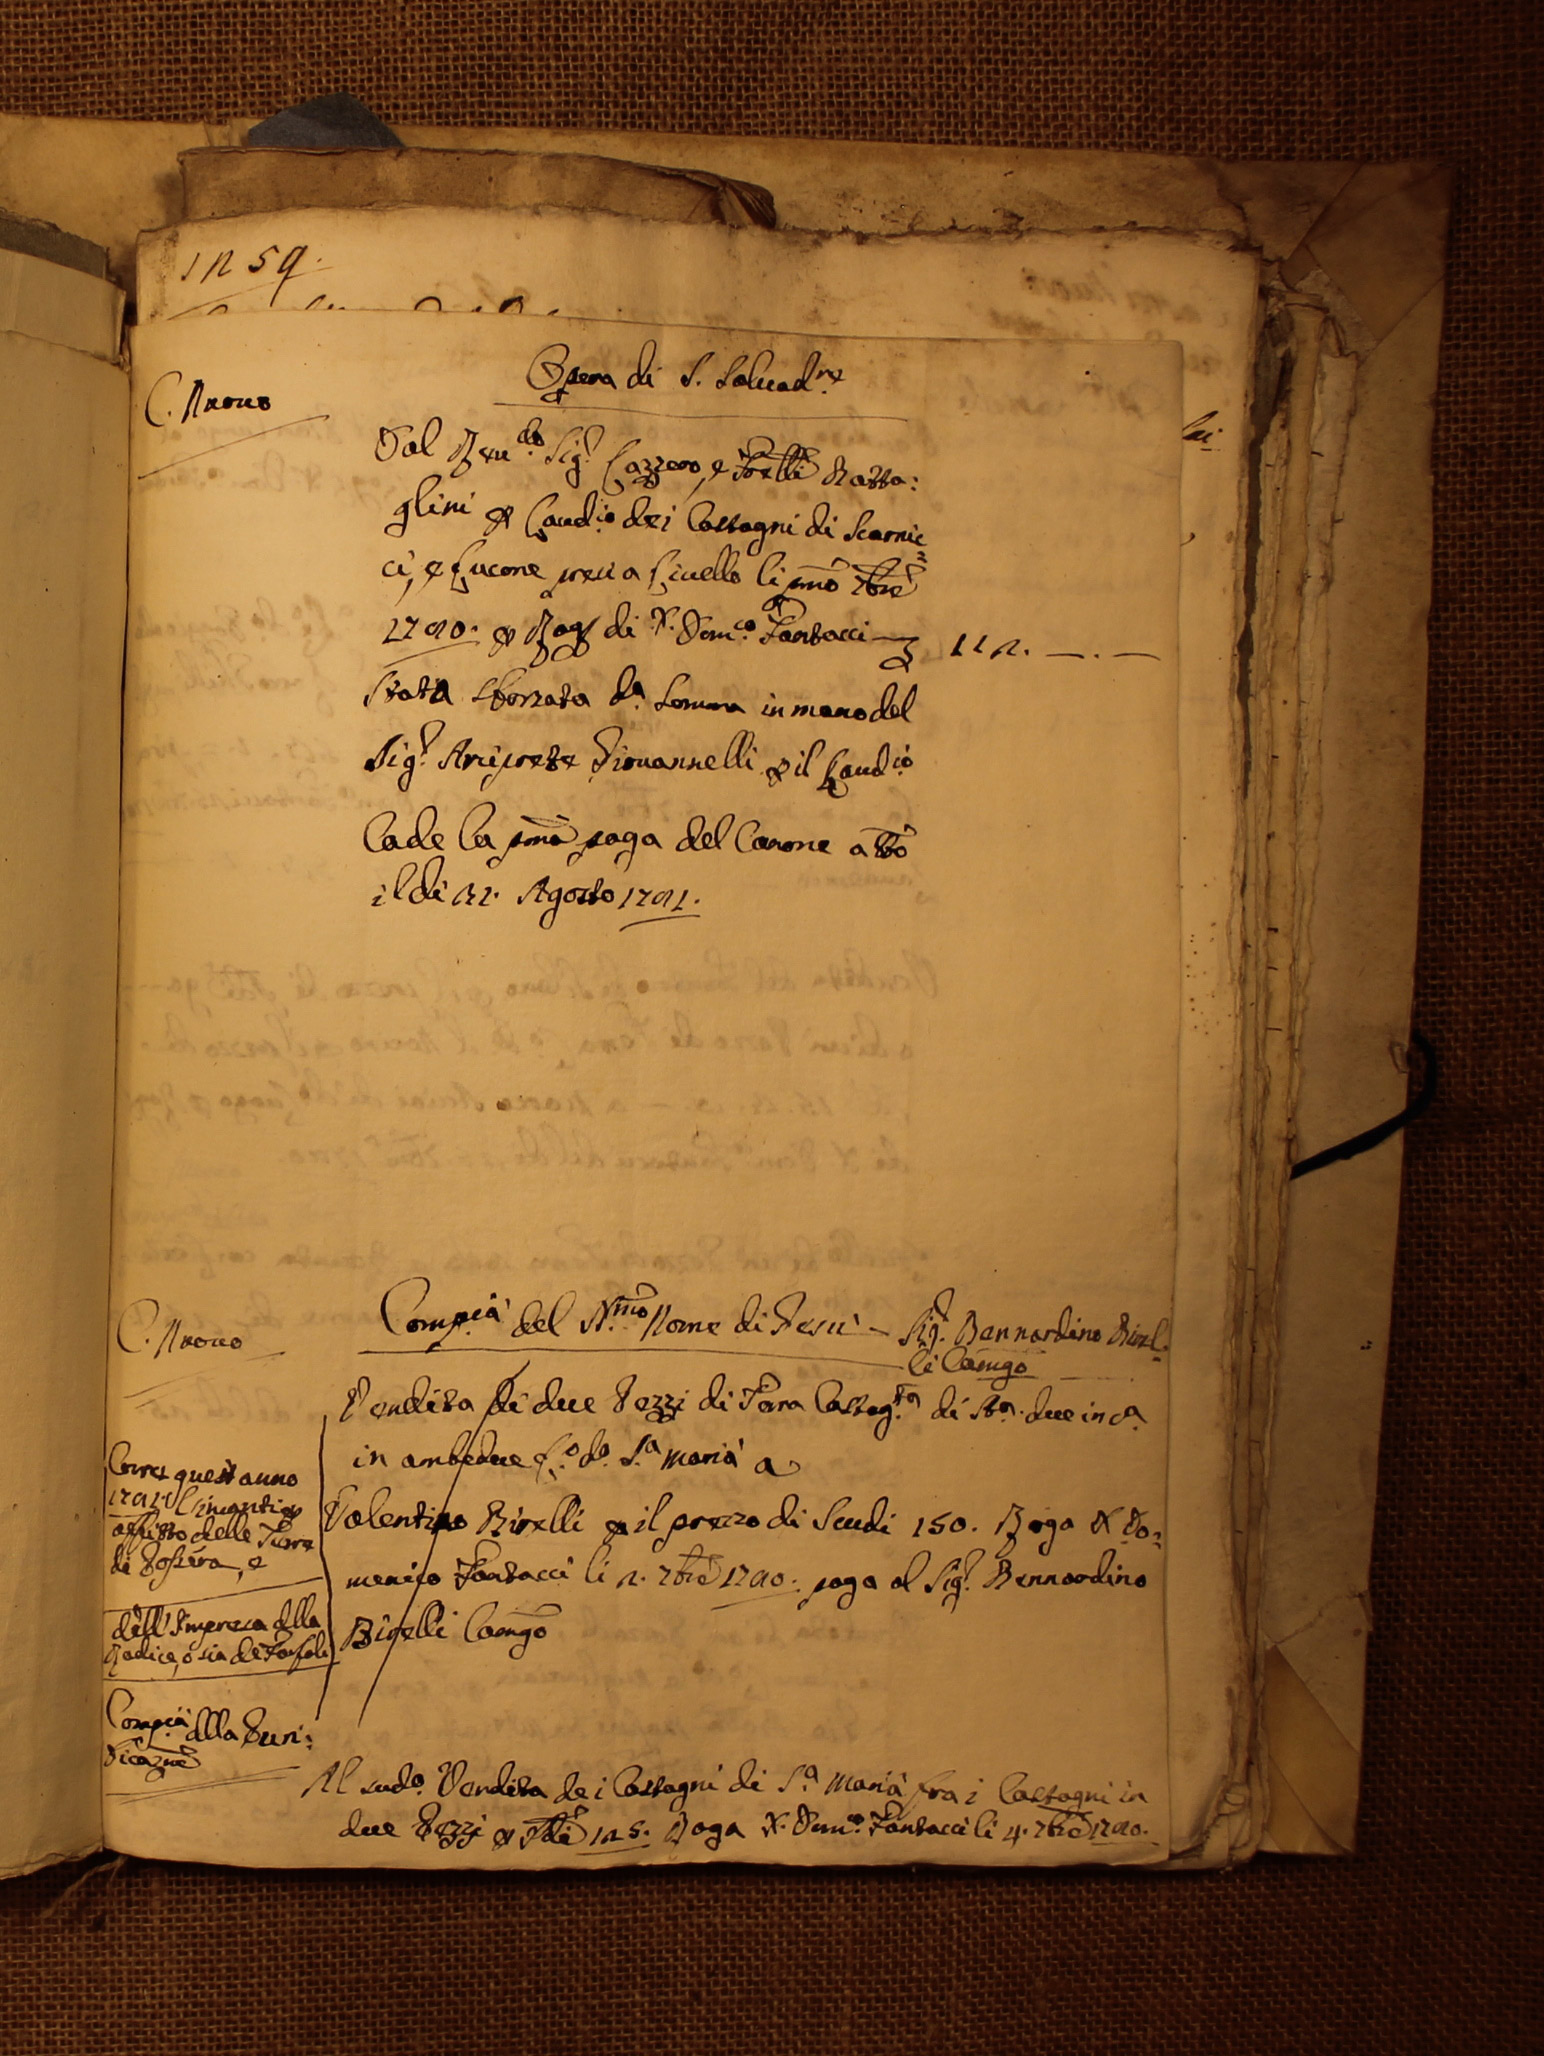 1259.
C. Nuovo
Opera di S. Salvad.re
Dal Reu.do Sig.r Lazzero, e Frelli Batta:
glini p Laud.io dei Castagni di Scarnic=
ci, e presi a Livello li pmo 7bre
1790. p Rog. di S. Dom.co Fantacci 112. —. —
Stata sborzata d.a Somma in mano del
Sig.r Arciprete Giovannelli p il Laud.io
Cade la pma paga del Canone a tto
il di 31. Agosto 1791.
C. Nuovo
Comp.ia del S.mo Nome di Gesù — Sig.r Bernardino Birel=
li Camgo
Vendita di due Pezzi di Terra Castag.ta di St.a due in c.a
in ambedue l.o d.o S.a Maria a
Valentino Birelli p il prezzo di Scudi 150. Roga S. Do=
menico Fantacci li 2. 7bre 1790. paga al Sig.r Bernardino
Birelli Camgo
Corre quest anno
1791. l'incanti p
affitto delle Terre
di Possera, e
dell'Impresa della
Radice, o sia de
Comp.ia della Puri:
ficazne
Al sud.o Vendita dei Castagni di S.a Maria fra i Castagni in
due Pezzi p 125. Roga S. Dom.co Fantacci li 4. 7bre 1790.